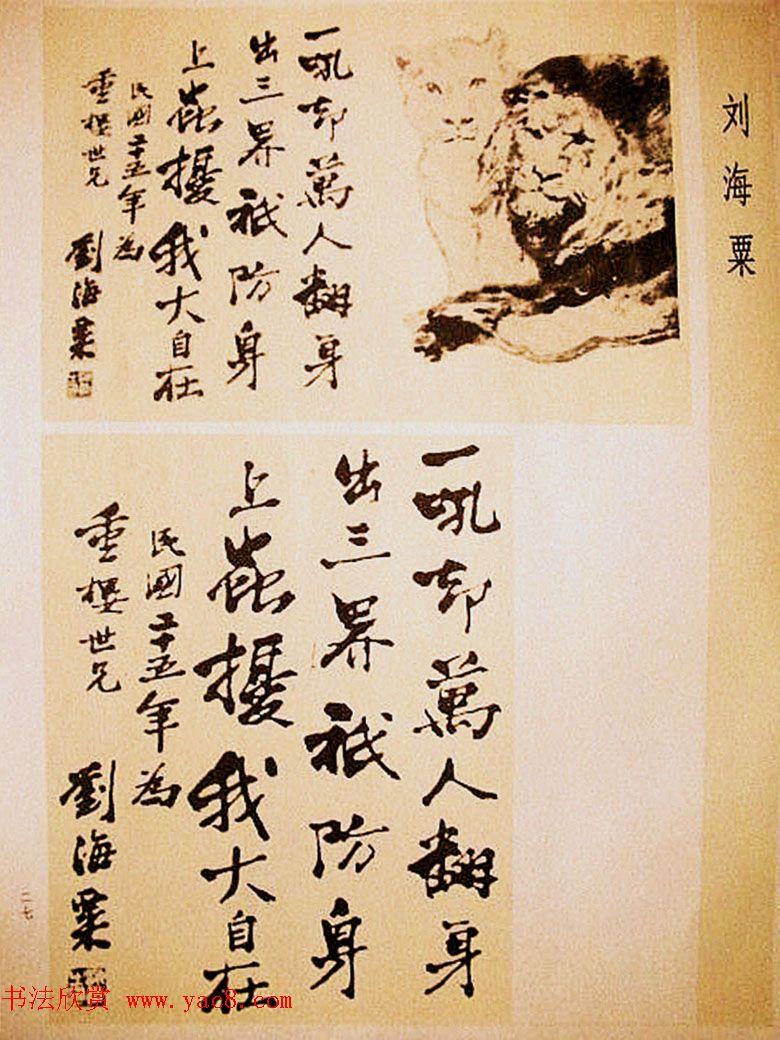 刘海粟
一吼却萬人翻身
出三界祇防身
上蟲擾我大自在
民國二十五年為
重樱世兄
劉海粟
一吼却萬人翻身
出三界祇防身
上蟲擾我大自在
民國二十五年為
重樱世兄
劉海粟
二七
书法欣赏 www.yac8.com